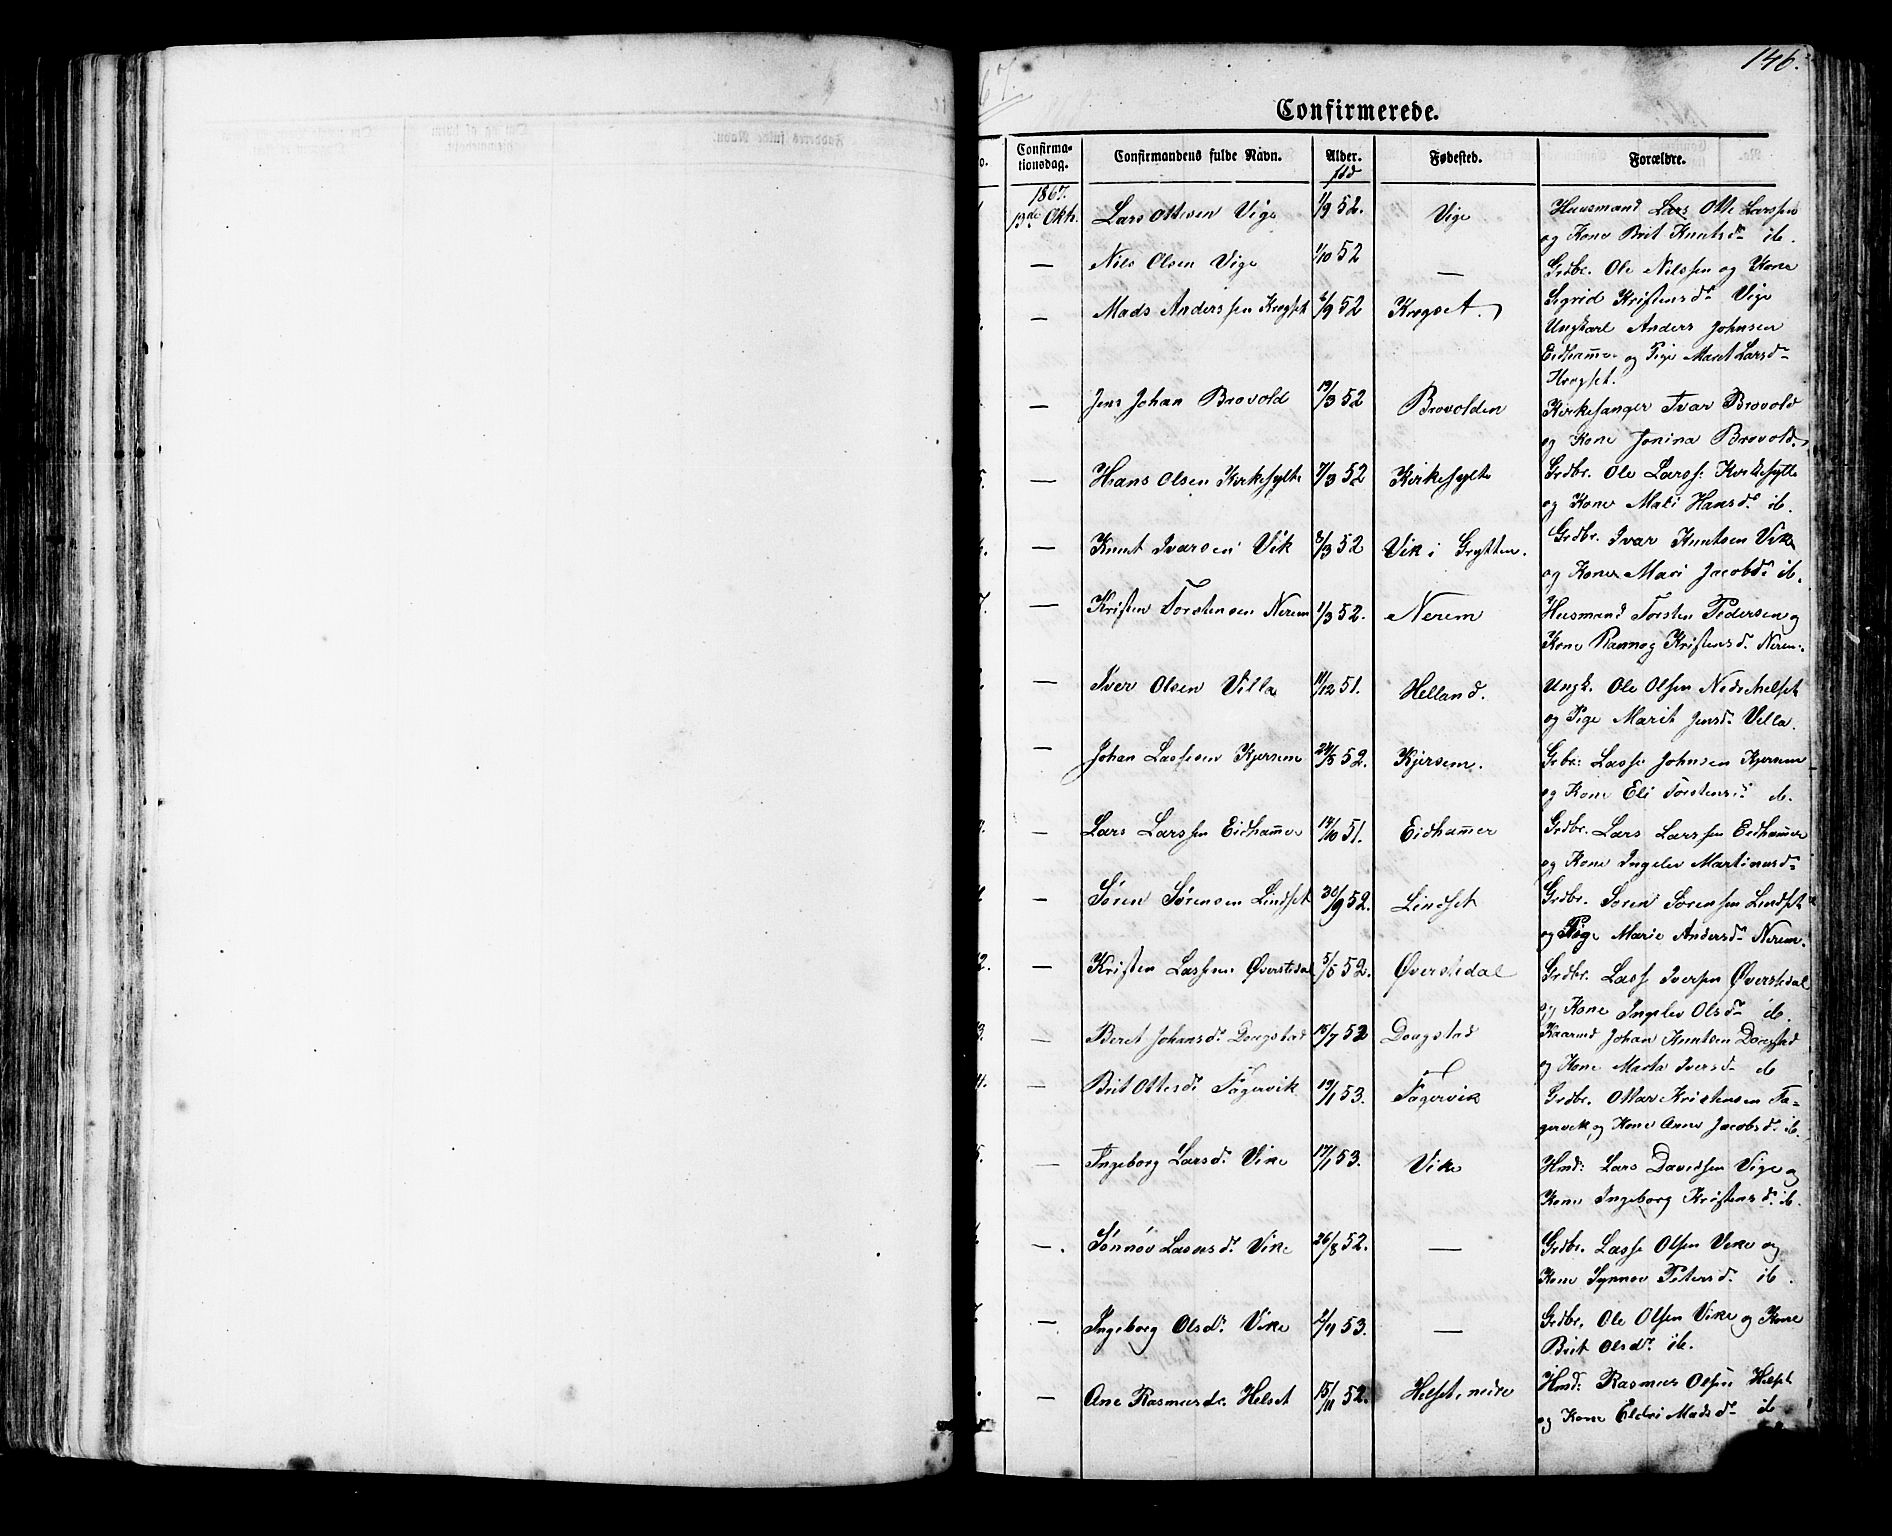 146.
67.
Confirmerede.
o. Confirma- Confirmandens fulde Navn. Alder. Fødested. Forældre.
tionsdag. fød
1867.
13de Oktr. Lars Ottesen Vige 1/9 52. Vige Huusmand Lars Otte Larssen
og Kone Brit Knutsdr ib.
— Nils Olsen Vige 1/10 52 — Grdbr. Ole Nilssen og Kone
Sigrid Kristensdr Vige
— Mads Anderssen Krogset 2/9 52 Krogset. Ungkarl Anders Johnsen
Eidhamer og Pige Marit Larsdr
Krogset.
— Jens Johan Brovold 19/3 52 Brovolden Kirkesanger Ivar Brovold
og Kone Jonina Brovold.
5. — Hans Olsen Kirkesylte 7/3 52 Kirkesylte Grdbr. Ole Larss: Kirkesylte
og Kone Mari Hansdr ib.
6. — Knut Ivarsen Vik 2/3 52 Vik i Grytten. Grdbr. Ivar Knutsen Vik
og Kone Mari Jacobsdr ib.
7. — Kristen Torstensen Nerem 1/3 52. Nerem Husmand Torsten Pedersen og
Kone Rannog Kristensdr Nerem.
— Iver Olsen Villa 11/12 51. Helland. Ungk. Ole Olsen Nedrehelset
og Pige Marit Jensdr Villa.
— Johan Lassesen Kjersem 24/5 52. Kjersem. Grbr: Lasse Johnsen Kjersem
og Kone Eli Torstensdr ib.
— Lars Larssen Eidhamer 14/10 51. Eidhamer Grdbr. Lars Larssen Eidhamer
og Kone Ingelev Martinusdr
— Sören Sörensen Lindset 30/9 52. Lindset Grdbr. Sören Sörensen Lindset
og Pige Marie Andersdr Nerem.
2. — Kristen Lassesen Øverstedal 5/5 52. Øverstedal Grdbr. Lasse Iversen Øverstedal
og Kone Ingelev Olsdr ib.
3. — Beret Johansdr Dougstad 15/7 52 Dougstad Kaarmd Johan Knutsen Dougstad
og Kone Marta Iversdr ib
4. — Brit Ottesdr Fagervik 19/1 53. Fagervik Grdbr. Ottar Kristensen Fa-
gervik og Kone Ane Jacobsdr ib.
5. — Ingeborg Larsdr Vike 17/1 53. Vike Hmd: Lars Davidsen Vige og
Kone Ingeborg Kristensdr ib.
— Sönnöv Lassesdr Vike 26/8 52. — Grdbr. Lasse Olsen Vike og
Kone Synnöv Petersdr ib.
7. — Ingeborg Olsdr Vike 2/11 53. — Grdbr. Ole Olsen Vike og Kone
Brit Olsdr ib.
— Ane Rasmusdr Helset 15/11 52. Helset, nedre Hmd: Rasmus Olsen Helset
og Kone Eldri Madsdr ib